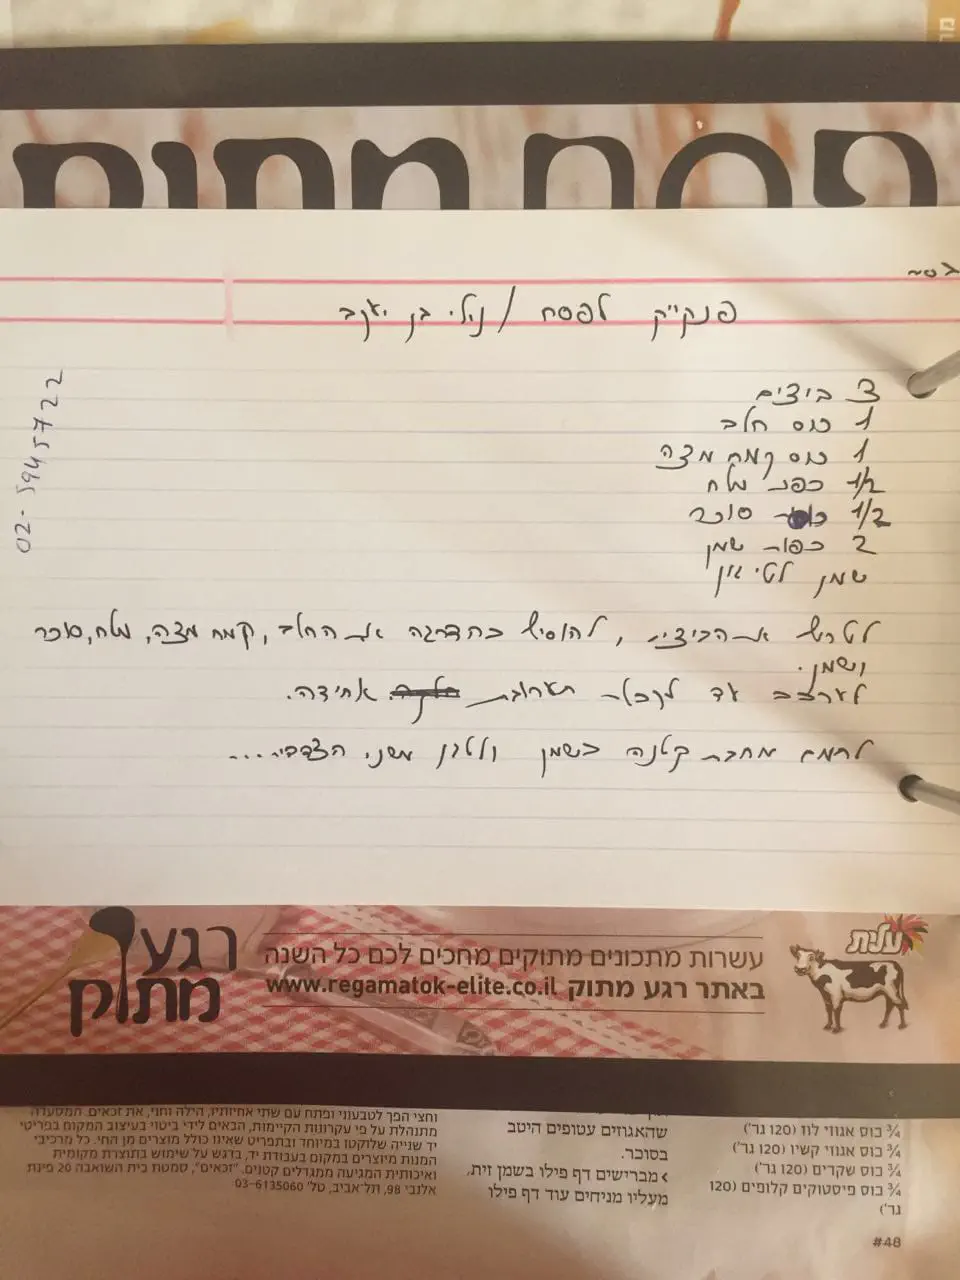 פסח מתוק
בס"ד
פנקייק לפסח / נילי בן יעקב
02-5945722
3 ביצים
1 כוס חלב
1 כוס קמח מצה
1/2 כפית מלח
1/2 סוכר
2 כפות שמן
שמן לטיגון
לטרוף את הביצים, להוסיף בהדרגה את החלב, קמח מצה, מלח, סוכר
ושמן.
לערבב עד לקבלת תערובת אחידה.
לחמם מחבת קטנה בשמן ולטגן משני הצדדים...
רגע
מתוק
עשרות מתכונים מתוקים מחכים לכם כל השנה
באתר רגע מתוק www.regamatok-elite.co.il
עלית
¾ כוס אגוזי לוז (120 גר')
¾ כוס אגוזי קשיו (120 גר')
¾ כוס שקדים (120 גר')
¾ כוס פיסטוקים קלופים (120
גר')
#48
שהאגוזים עטופים היטב
בסוכר.
> מברישים דף פילו בשמן זית,
מעליו מניחים עוד דף פילו
וחצי הפך לטבעוני ופתח עם שתי אחיותיו, הילה וחני, את זכאים. המסעדה
מתנהלת על פי עקרונות הקיימות, הבאים לידי ביטוי בעיצוב המקום בפריטי
יד שנייה שלוקטו במיוחד ובתפריט שאינו כולל מוצרים מן החי. כל מרכיבי
המנות מיוצרים במקום בעבודת יד, בדגש על שימוש בתוצרת מקומית
ואיכותית המגיעה ממגדלים קטנים. "זכאים", סמטת בית השואבה 20 פינת
אלנבי 98, תל־אביב, טל' 03-6135060